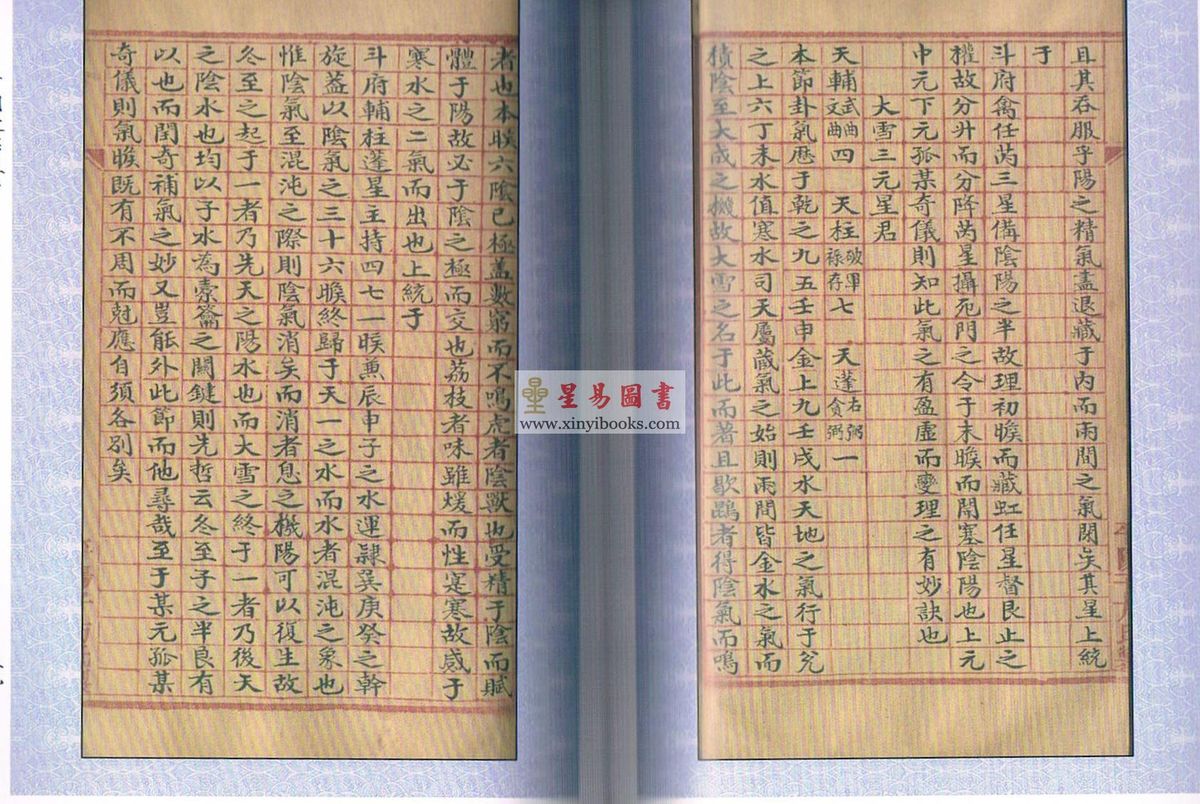 且其吞服乎陽之精氣盡退藏于內而兩間之氣閉矣其星上統
于
斗府禽任芮三星備陰陽之半故理初㬋而藏虹任星督艮止之
權故分升而分降芮星攝死門之令于末㬋而閉塞陰陽也上元
中元下元孤某奇儀則知此氣之有盈虛而變理之有妙訣也
大雪三元星君
天輔武曲文曲四 天柱破軍祿存七 天蓬右弼貪弼一
本節卦氣歷于乾之九五壬申金上九壬戌水天地之氣行于兌
之上六丁未水值寒水司天屬藏氣之始則兩間皆金水之氣而
積陰至大成之機故大雪之名于此而著且歇鶡者得陰氣而鳴
者也本㬋六陰已極蓋數窮而不鳴虎者陰獸也受精于陰而賦
體于陽故必于陰之極而交也荔枝者味雖煖而性寔寒故感于
寒水之二氣而出也上統于
斗府輔柱蓬星主持四七一㬋兼辰申子之水運隸巽庚癸之幹
旋蓋以陰氣之三十六㬋終歸于天一之水而水者混沌之象也
惟陰氣至混沌之際則陰氣消矣而消者息之機陽可以復生故
冬至之起于一者乃先天之陽水也而大雪之終于一者乃後天
之陰水也均以子水為橐籥之關鍵則先哲云冬至子之半良有
以也而閏奇補氣之妙又豈能外此節而他尋哉至于某元孤某
奇儀則氣㬋既有不周而尅應自須各別矣
星易圖書
www.xinyibooks.com